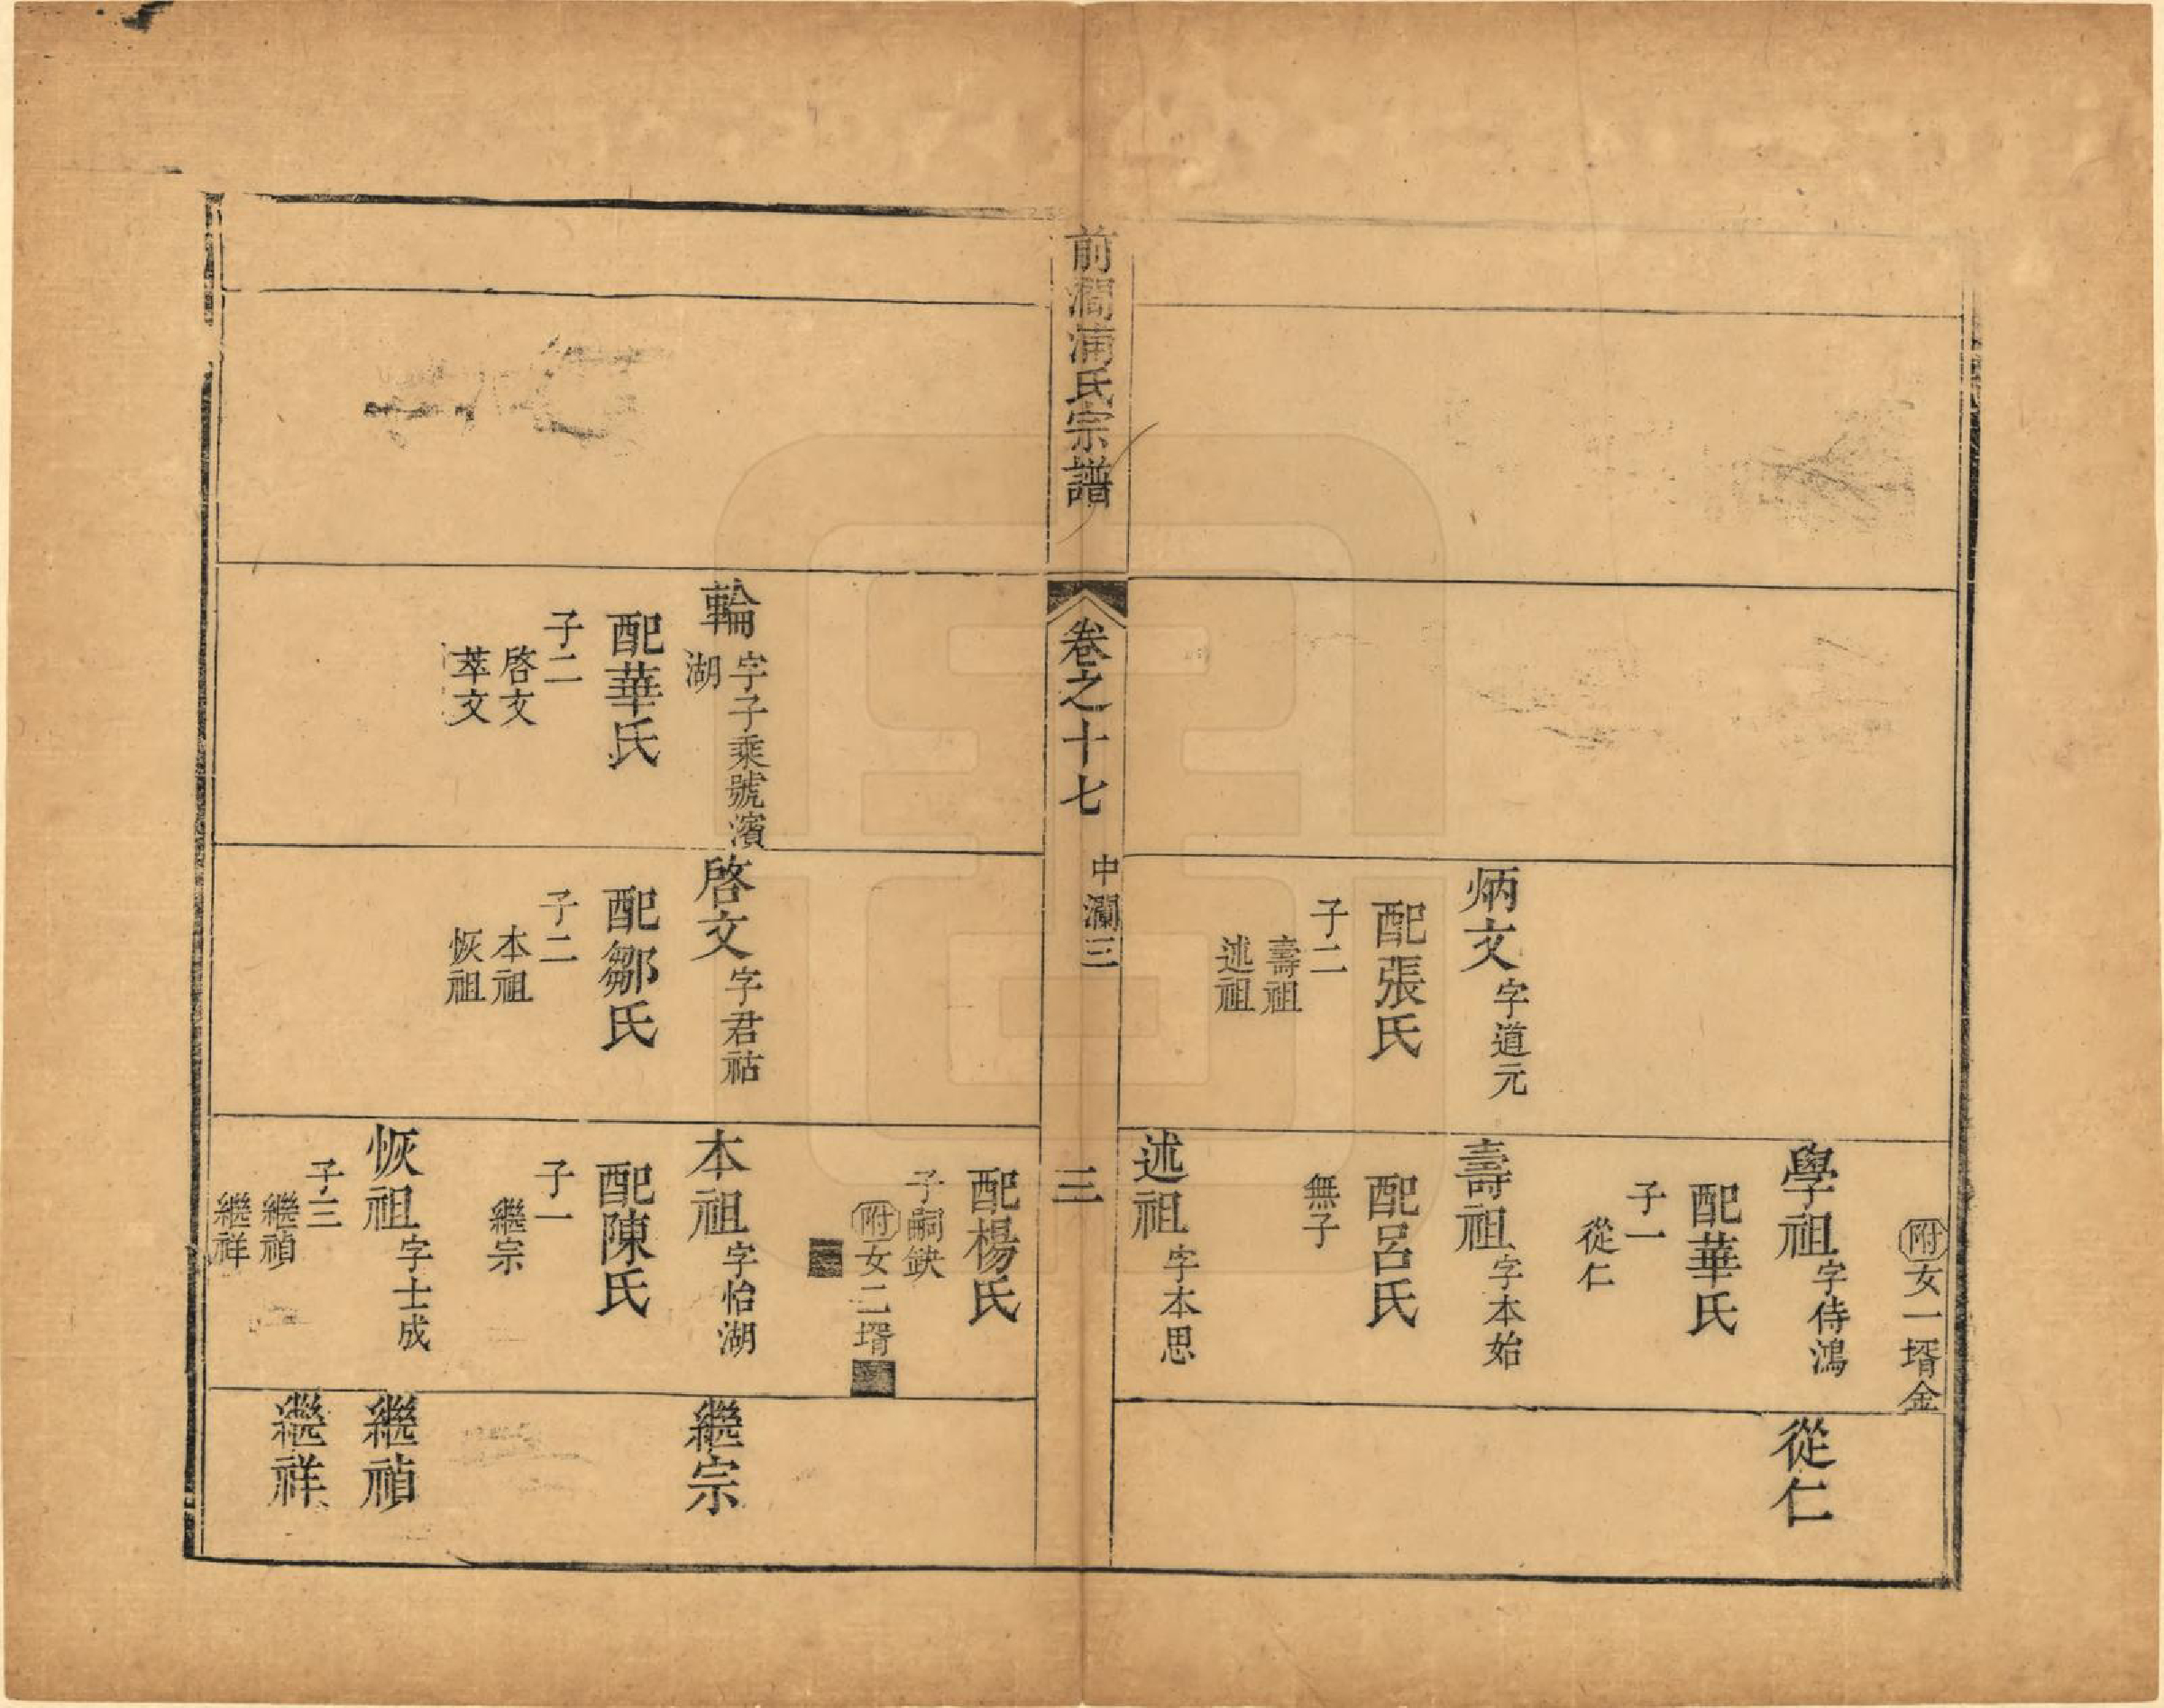 炳文 字道元
配張氏
子二
壽祖
述祖
附女一壻金
學祖 字侍鴻
配華氏
子一
從仁
壽祖 字本始
配呂氏
無子
述祖 字本思
從仁
前澗浦氏宗譜
卷之十七
中瀾三
三
輪 字子乘號濱
湖
配華氏
子二
啓文
萃文
啓文 字君祜
配鄒氏
子二
本祖
恢祖
配楊氏
子嗣缺
附女二壻
本祖 字怡湖
配陳氏
子一
繼宗
恢祖 字士成
子三
繼禎
繼祥
繼宗
繼禎
繼祥